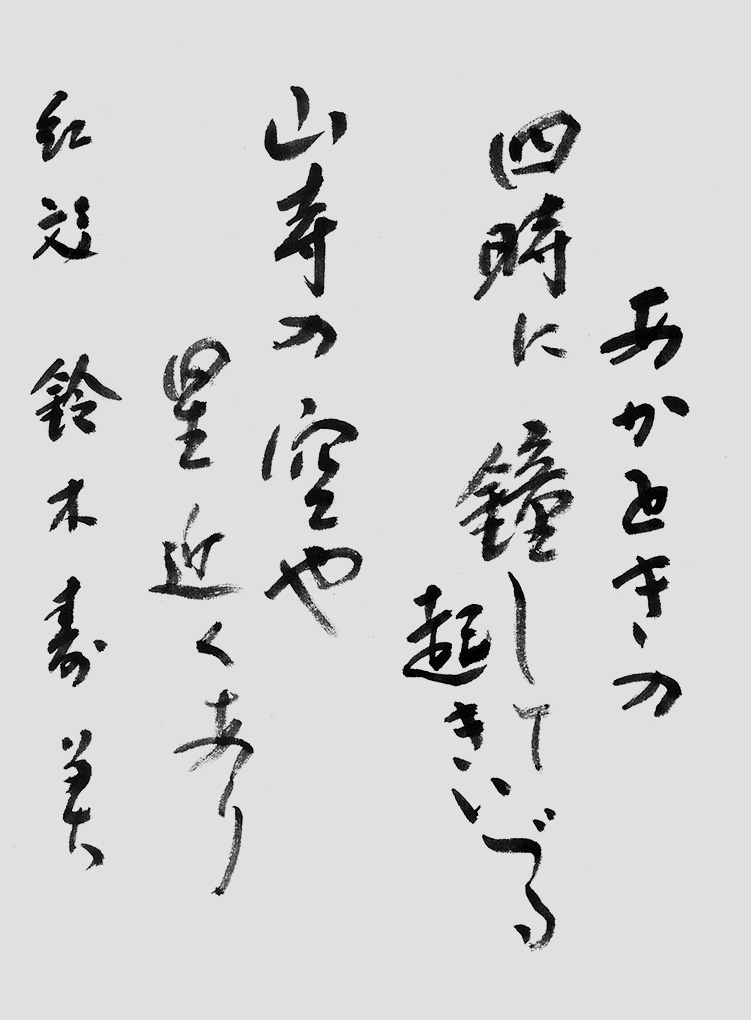 あかときの
四時に鐘して
起きいづる
山寺の空や
星近くあり
鈴木寿美